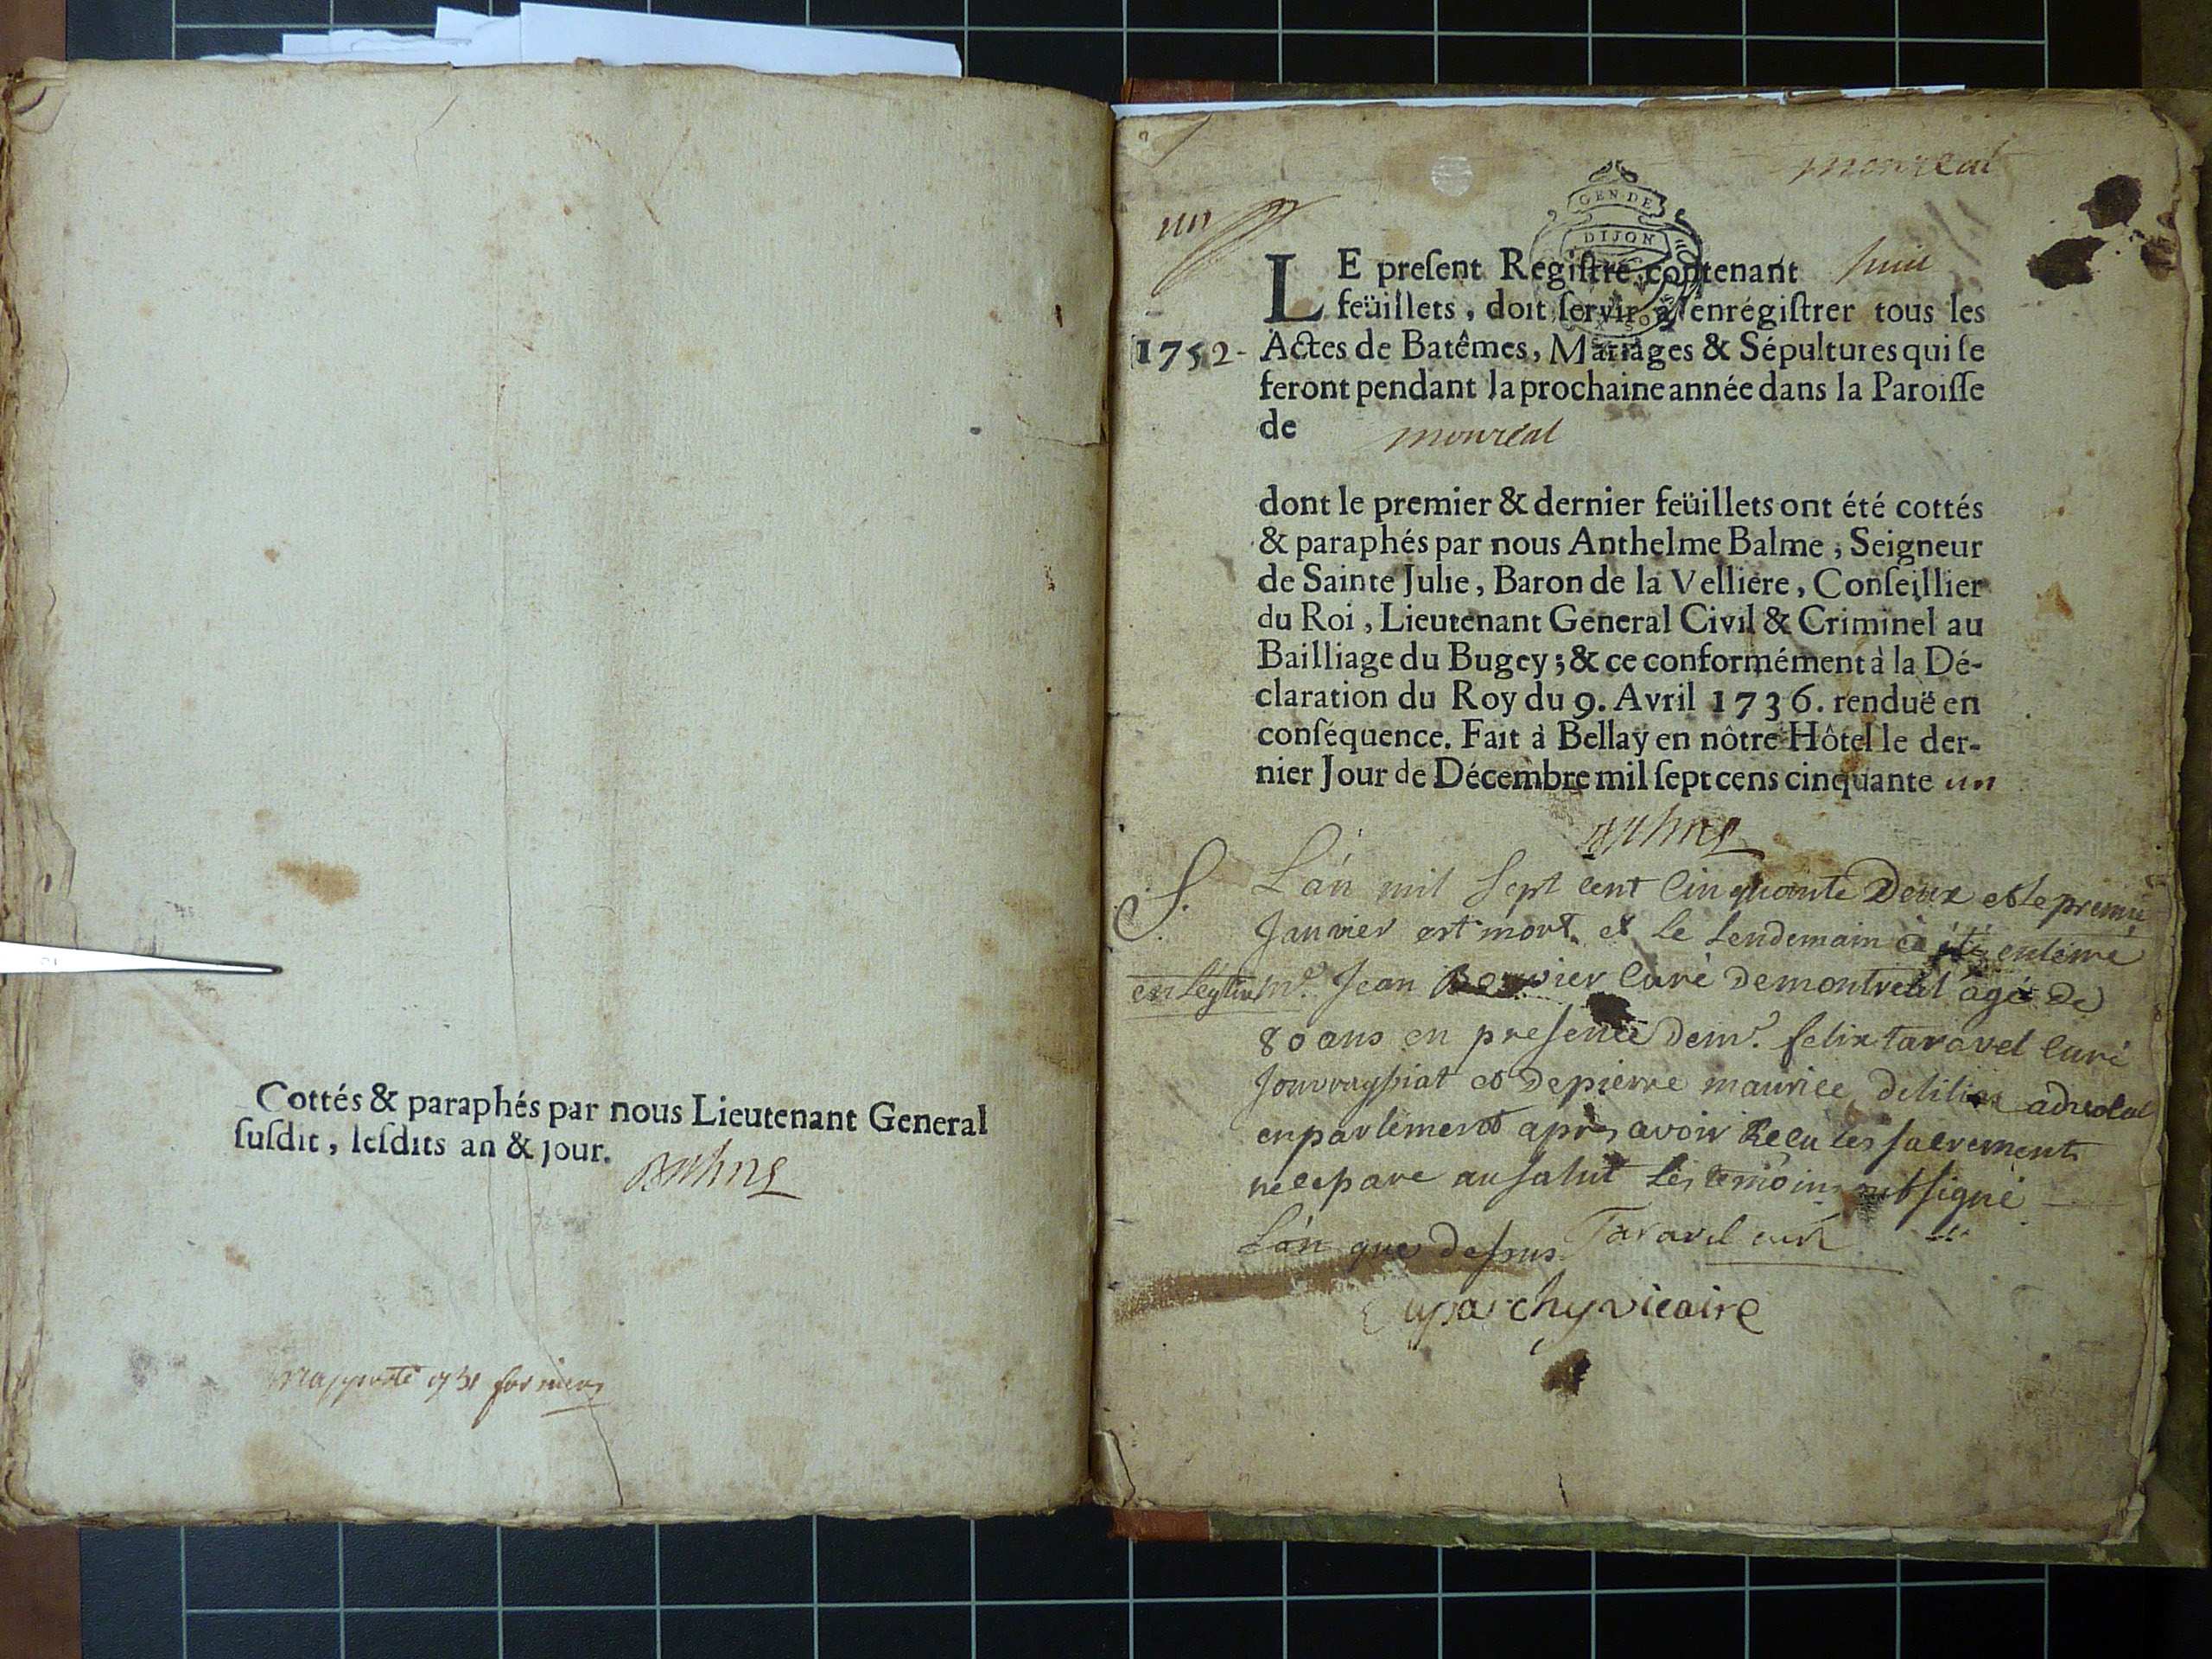 Cottés & paraphés par nous Lieutenant General
ſuſdit, leſdits an & jour.
monreal
un
GEN DE
DIJON
LE preſent Regiſtre contenant huit
feüillets, doit ſervir à enrégiſtrer tous les
1752 - Actes de Batêmes, Mariages & Sépultures qui ſe
feront pendant la prochaine année dans la Paroiſſe
de monreal
dont le premier & dernier feüillets ont été cottés
& paraphés par nous Anthelme Balme, Seigneur
de Sainte Julie, Baron de la Velliere, Conſeillier
du Roi, Lieutenant General Civil & Criminel au
Bailliage du Bugey; & ce conformément à la Dé-
claration du Roy du 9. Avril 1736. renduë en
conſéquence. Fait à Bellaÿ en nôtre Hôtel le der-
nier Jour de Décembre mil ſept cens cinquante un
S. L'an mil sept cent cinquante Deux et le premie
Janvier est mort et le lendemain à été enterré
en l'eglise mr. Jean Bouvier curé de montreal agé De
80 ans en presence de mr. felix taravel curé
et de pierre maurice advocat
en parlement apres avoir Reçu les sacrements
necepare au salut les temoins signé
L'an que dessus Taravel curé
vicaire